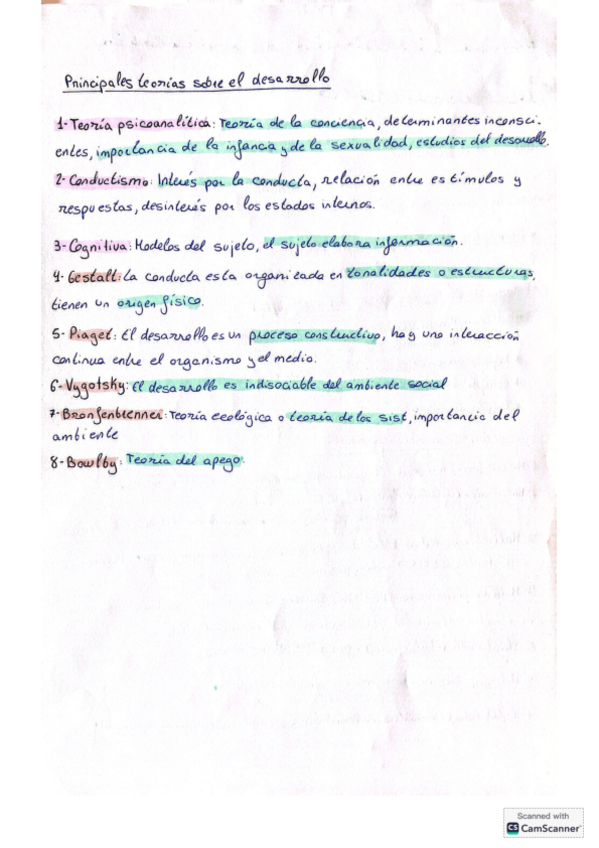 Principales teorías sobre el desarrollo
1- Teoría psicoanalítica: Teoría de la conciencia, determinantes inconsci-
entes, importancia de la infancia y de la sexualidad, estudios del desarrollo.
2- Conductismo: Interés por la conducta, relación entre estímulos y
respuestas, desinterés por los estados internos.
3- Cognitiva: Modelos del sujeto, el sujeto elabora información.
4- Gestalt: La conducta esta organizada en tonalidades o estructuras,
tienen un origen físico.
5- Piaget: El desarrollo es un proceso constructivo, hay una interacción
continua entre el organismo y el medio.
6- Vygotsky: El desarrollo es indisociable del ambiente social
7- Bronfenbrenner: Teoría ecológica o teoría de los sist, importancia del
ambiente
8- Bowlby: Teoría del apego.
Scanned with
CS CamScanner